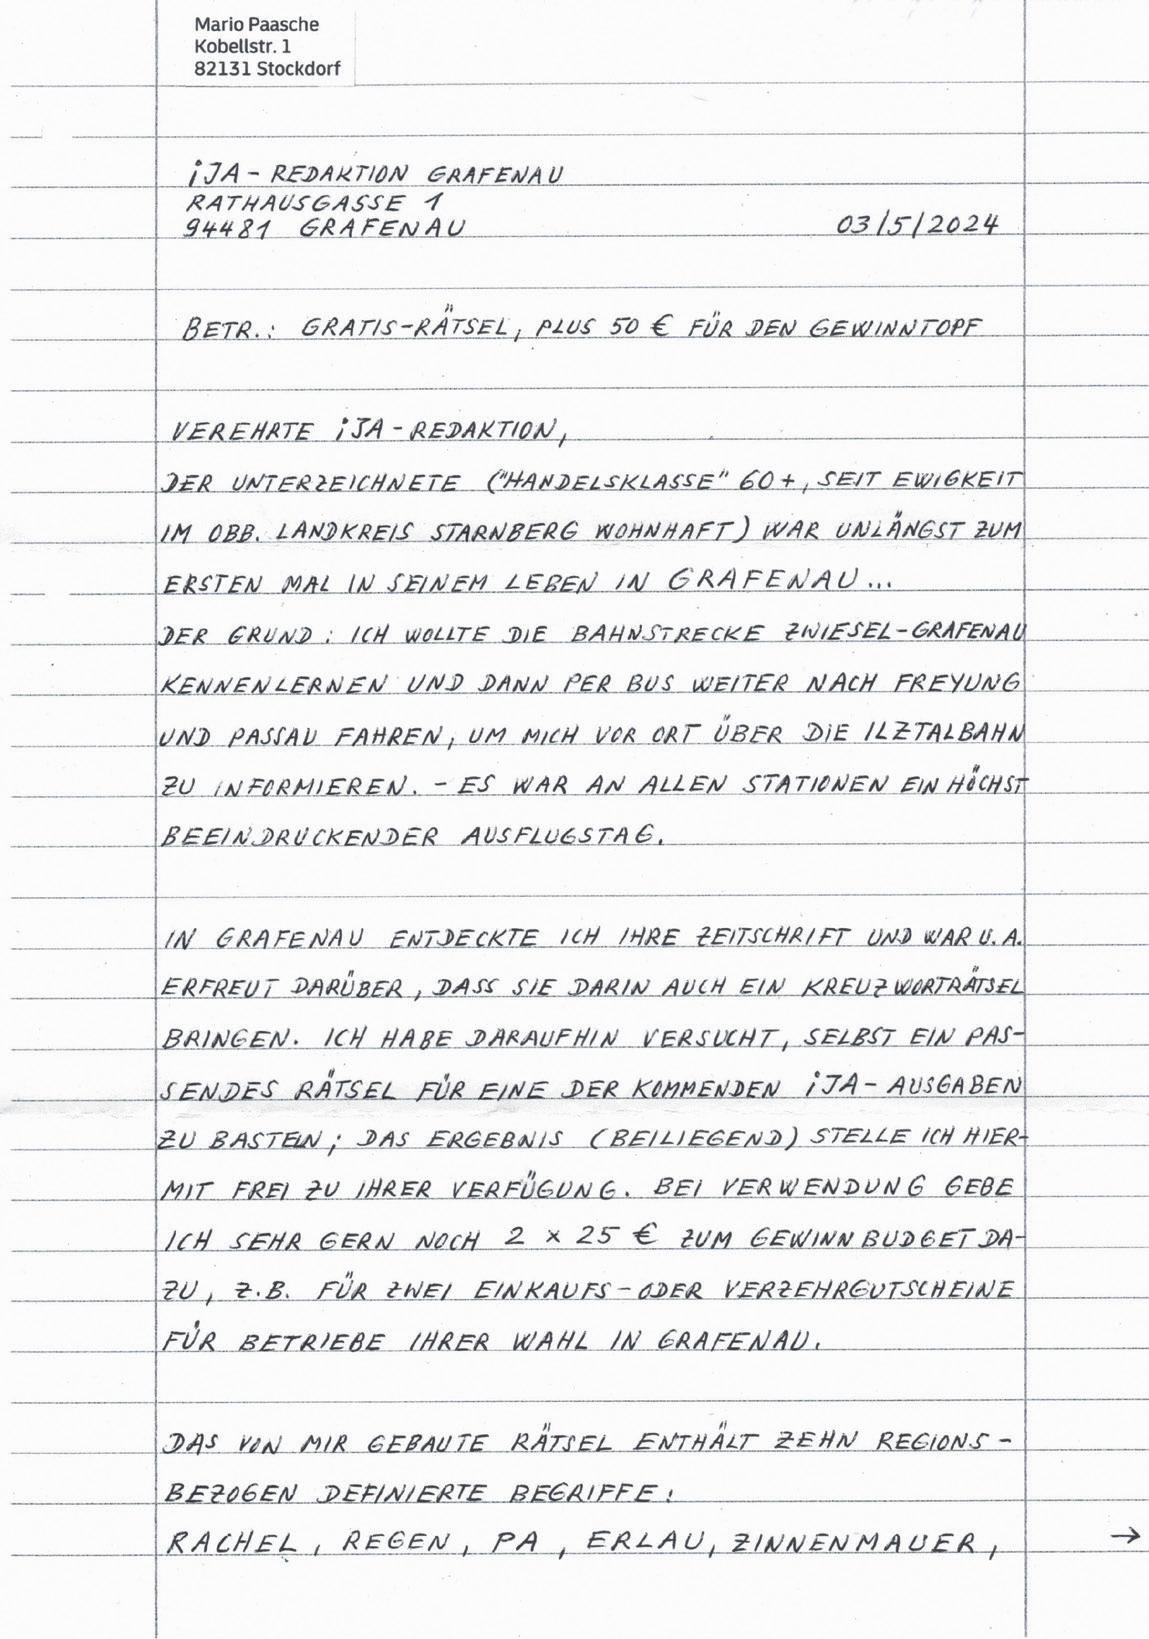 Mario Paasche
Kobellstr. 1
82131 Stockdorf
iJA - REDAKTION GRAFENAU
RATHAUSGASSE 1
94481 GRAFENAU
03/5/2024
BETR.: GRATIS-RÄTSEL, PLUS 50 € FÜR DEN GEWINNTOPF
VEREHRTE iJA - REDAKTION,
DER UNTERZEICHNETE ("HANDELSKLASSE" 60+, SEIT EWIGKEIT
IM OBB. LANDKREIS STARNBERG WOHNHAFT) WAR UNLÄNGST ZUM
ERSTEN MAL IN SEINEM LEBEN IN GRAFENAU...
DER GRUND: ICH WOLLTE DIE BAHNSTRECKE ZWIESEL-GRAFENAU
KENNENLERNEN UND DANN PER BUS WEITER NACH FREYUNG
UND PASSAU FAHREN, UM MICH VOR ORT ÜBER DIE ILZTALBAHN
ZU INFORMIEREN. - ES WAR AN ALLEN STATIONEN EIN HÖCHST
BEEINDRUCKENDER AUSFLUGSTAG.
IN GRAFENAU ENTDECKTE ICH IHRE ZEITSCHRIFT UND WAR U.A.
ERFREUT DARÜBER, DASS SIE DARIN AUCH EIN KREUZWORTRÄTSEL
BRINGEN. ICH HABE DARAUFHIN VERSUCHT, SELBST EIN PAS-
SENDES RÄTSEL FÜR EINE DER KOMMENDEN iJA - AUSGABEN
ZU BASTELN; DAS ERGEBNIS (BEILIEGEND) STELLE ICH HIER-
MIT FREI ZU IHRER VERFÜGUNG. BEI VERWENDUNG GEBE
ICH SEHR GERN NOCH 2 x 25 € ZUM GEWINNBUDGET DA-
ZU, Z.B. FÜR ZWEI EINKAUFS-ODER VERZEHRGUTSCHEINE
FÜR BETRIEBE IHRER WAHL IN GRAFENAU.
DAS VON MIR GEBAUTE RÄTSEL ENTHÄLT ZEHN REGIONS-
BEZOGEN DEFINIERTE BEGRIFFE:
RACHEL, REGEN, PA, ERLAU, ZINNENMAUER, →